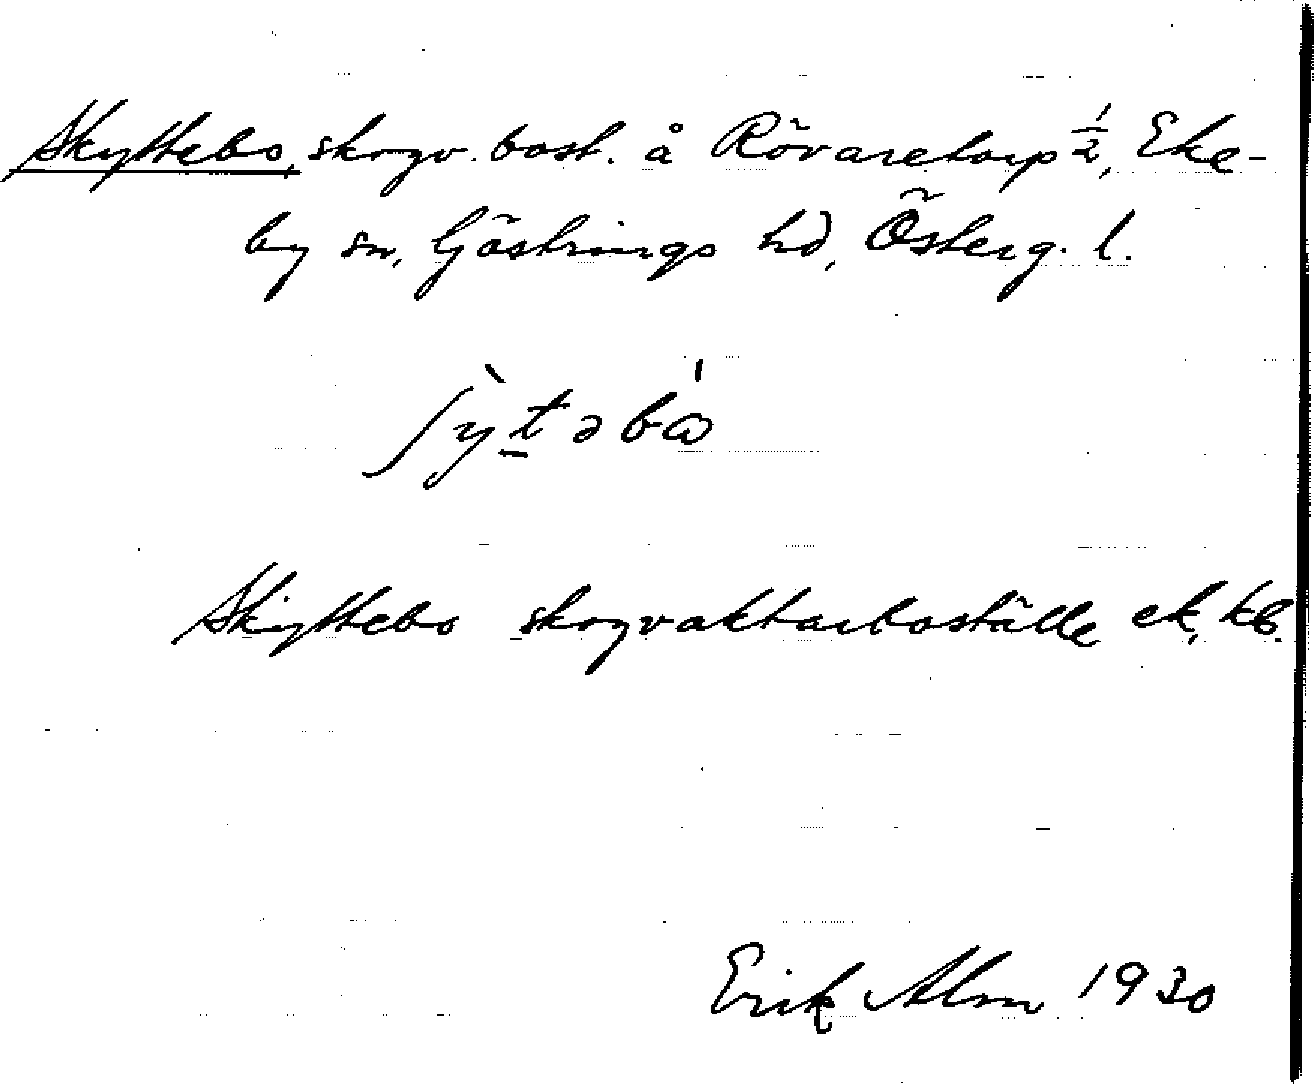 Skyttebo, skogv. bost. å Rövaretorp 1/2, Eke-
by sn, Göstrings hd, Österg. l.
ʃỳtəbω̍
Skyttebo skogvaktarboställe ek, kb.
Erik Alm 1930